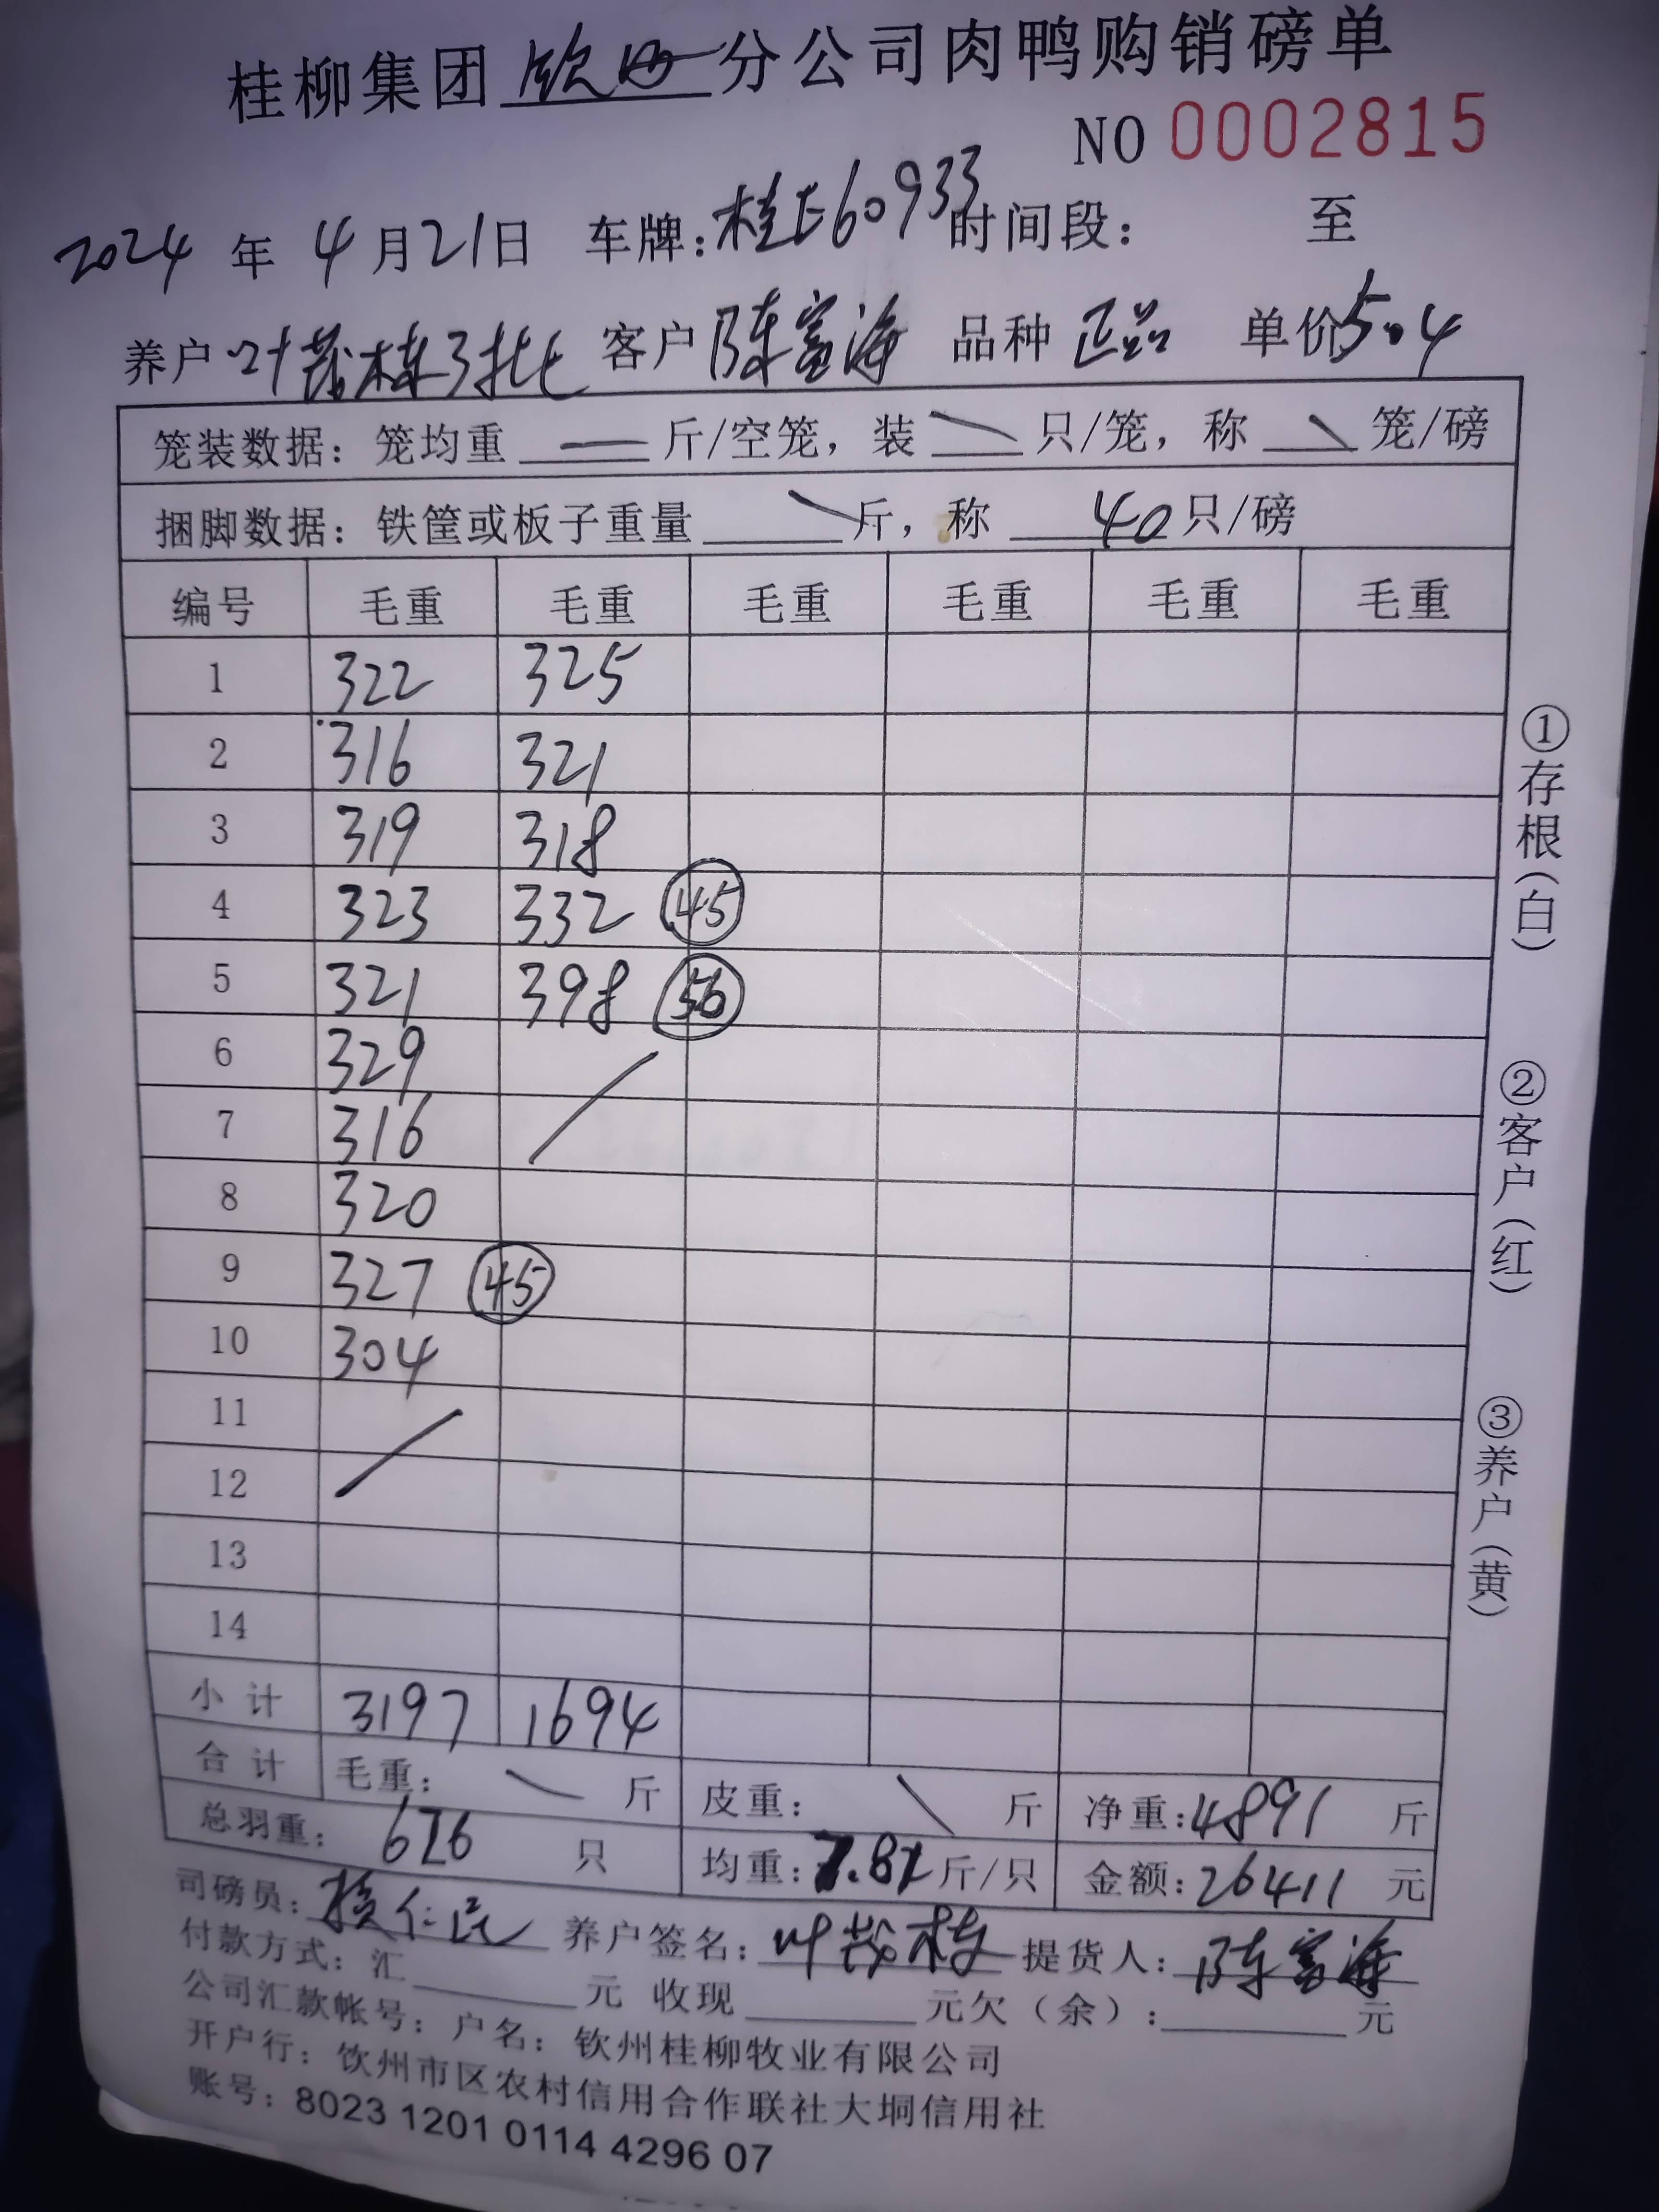 桂柳集团 钦州 分公司肉鸭购销磅单
NO 0002815
2024 年 4 月 21 日 车牌: 桂E60933 时间段: 至
养户 叶茂栋3批 客户 陈富海 品种 正品 单价 5.4
笼装数据: 笼均重 — 斤/空笼, 装 \ 只/笼, 称 \ 笼/磅
捆脚数据: 铁筐或板子重量 \ 斤, 称 40 只/磅
编号 毛重 毛重 毛重 毛重 毛重 毛重
1 322 325
2 316 321
3 319 318
4 323 332 45
5 321 398 56
6 329
7 316
8 320
9 327 45
10 304
11
12
13
14
小计 3197 1694
合计 毛重: \ 斤 皮重: \ 斤 净重: 4891 斤
总羽重: 626 只 均重: 7.81 斤/只 金额: 26411 元
司磅员: 仁 养户签名: 叶茂栋 提货人: 陈富海
付款方式: 汇 元 收现 元欠(余): 元
公司汇款帐号: 户名: 钦州桂柳牧业有限公司
开户行: 钦州市区农村信用合作联社大垌信用社
账号: 8023 1201 0114 4296 07
①存根(白)
②客户(红)
③养户(黄)